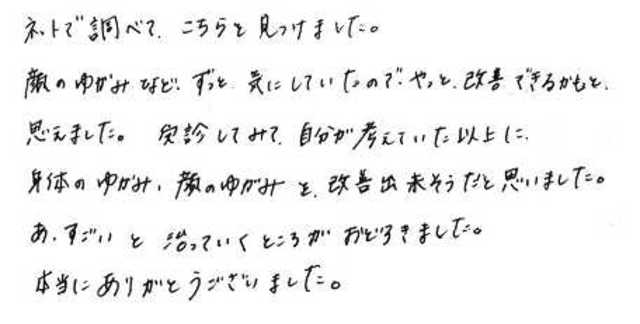 ネットで調べて、こちらを見つけました。
顔のゆがみなど、ずっと気にしていたので、やっと、改善できるかもと、
思えました。 受診してみて、自分が考えていた以上に、
身体のゆがみ、顔のゆがみを、改善出来そうだと思いました。
あ、すごいと治っていくところがおどろきました。
本当にありがとうございました。